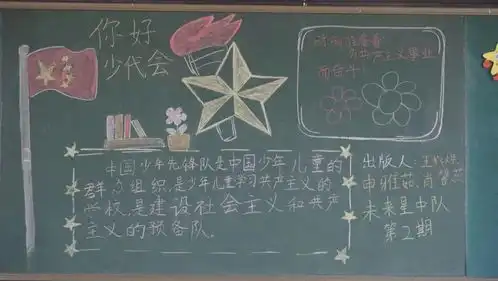 你好
少代会
时刻准备着
为共产主义事业
而奋斗!
中国少年先锋队是中国少年儿童的
群众组织,是少年儿童学习共产主义的
学校,是建设社会主义和共产
主义的预备队.
出版人:王
申雅茹.肖
未来星中队
第2期